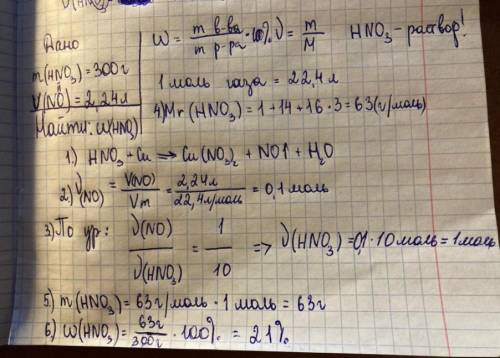 Дано
m(HNO₃)=300г
V(NO)=2,24л
Найти: ω(HNO₃)
ω = m в-ва / m р-ра · 100% ν = m/M HNO₃ - раствор!
1 моль газа = 22,4л
4) Mr(HNO₃) = 1+14+16·3 = 63(г/моль)
1.) HNO₃ + Cu ⟹ Cu(NO₃)₂ + NO↑ + H₂O
2) ν(NO) = V(NO)/Vm = 2,24л/22,4л/моль = 0,1моль
3) По ур: ν(NO)/ν(HNO₃) = 1/10 => ν(HNO₃)=0,1·10моль=1моль
5) m(HNO₃) = 63г/моль · 1 моль = 63г
6) ω(HNO₃) = 63г/300г · 100% = 21%